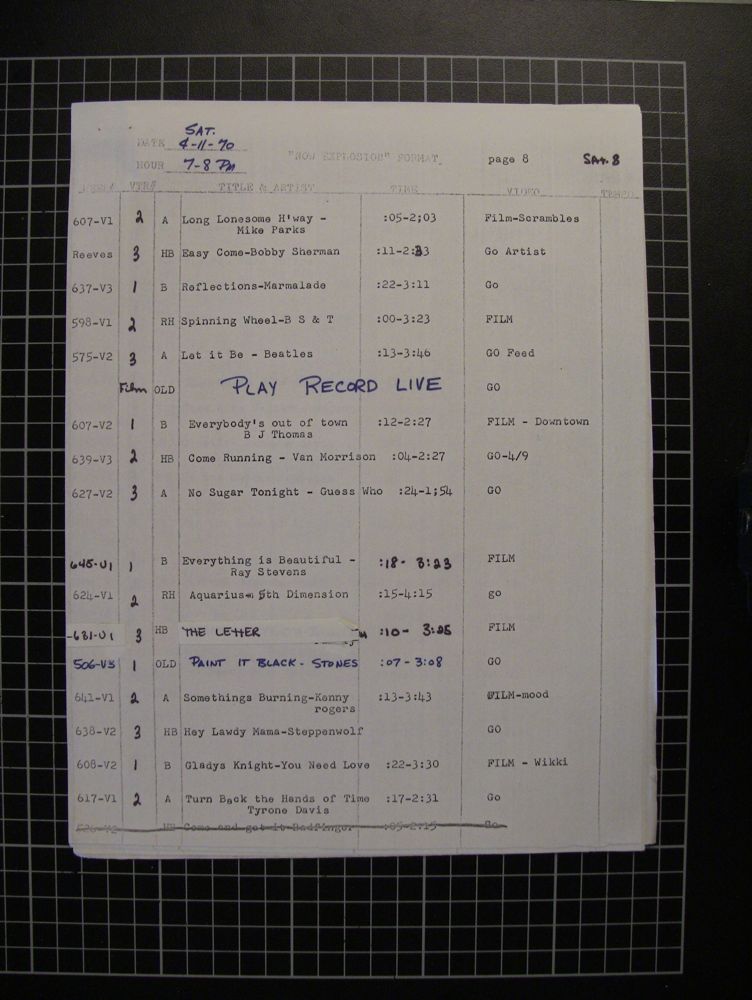 SAT.
DATE 4-11-70
HOUR 7-8 PM "NOW EXPLOSION" FORMAT page 8 SAT. 8
VTR# TITLE & ARTIST TIME VIDEO TEMPO
607-V1 2 A Long Lonesome H'way - :05-2;03 Film-Scrambles
Mike Parks
Reeves 3 HB Easy Come-Bobby Sherman :11-2:33 Go Artist
637-V3 1 B Reflections-Marmalade :22-3:11 Go
598-V1 2 RH Spinning Wheel-B S & T :00-3:23 FILM
575-V2 3 A Let it Be - Beatles :13-3:46 GO Feed
Film OLD PLAY RECORD LIVE GO
607-V2 1 B Everybody's out of town :12-2:27 FILM - Downtown
B J Thomas
639-V3 2 HB Come Running - Van Morrison :04-2:27 GO-4/9
627-V2 3 A No Sugar Tonight - Guess Who :24-1;54 GO
645-V1 1 B Everything is Beautiful - :18- 3:23 FILM
Ray Stevens
624-V1 2 RH Aquarius- 5th Dimension :15-4:15 go
-631-V1 3 HB THE LETTER :10- 3:25 FILM
506-V3 1 OLD PAINT IT BLACK - STONES :07 - 3:08 GO
641-V1 2 A Somethings Burning-Kenny :13-3:43 FILM-mood
rogers
638-V2 3 HB Hey Lawdy Mama-Steppenwolf GO
608-V2 1 B Gladys Knight-You Need Love :22-3:30 FILM - Wikki
617-V1 2 A Turn Back the Hands of Time :17-2:31 Go
Tyrone Davis
526-V2 HB Come and get it-Badfinger :05-2:15 Go